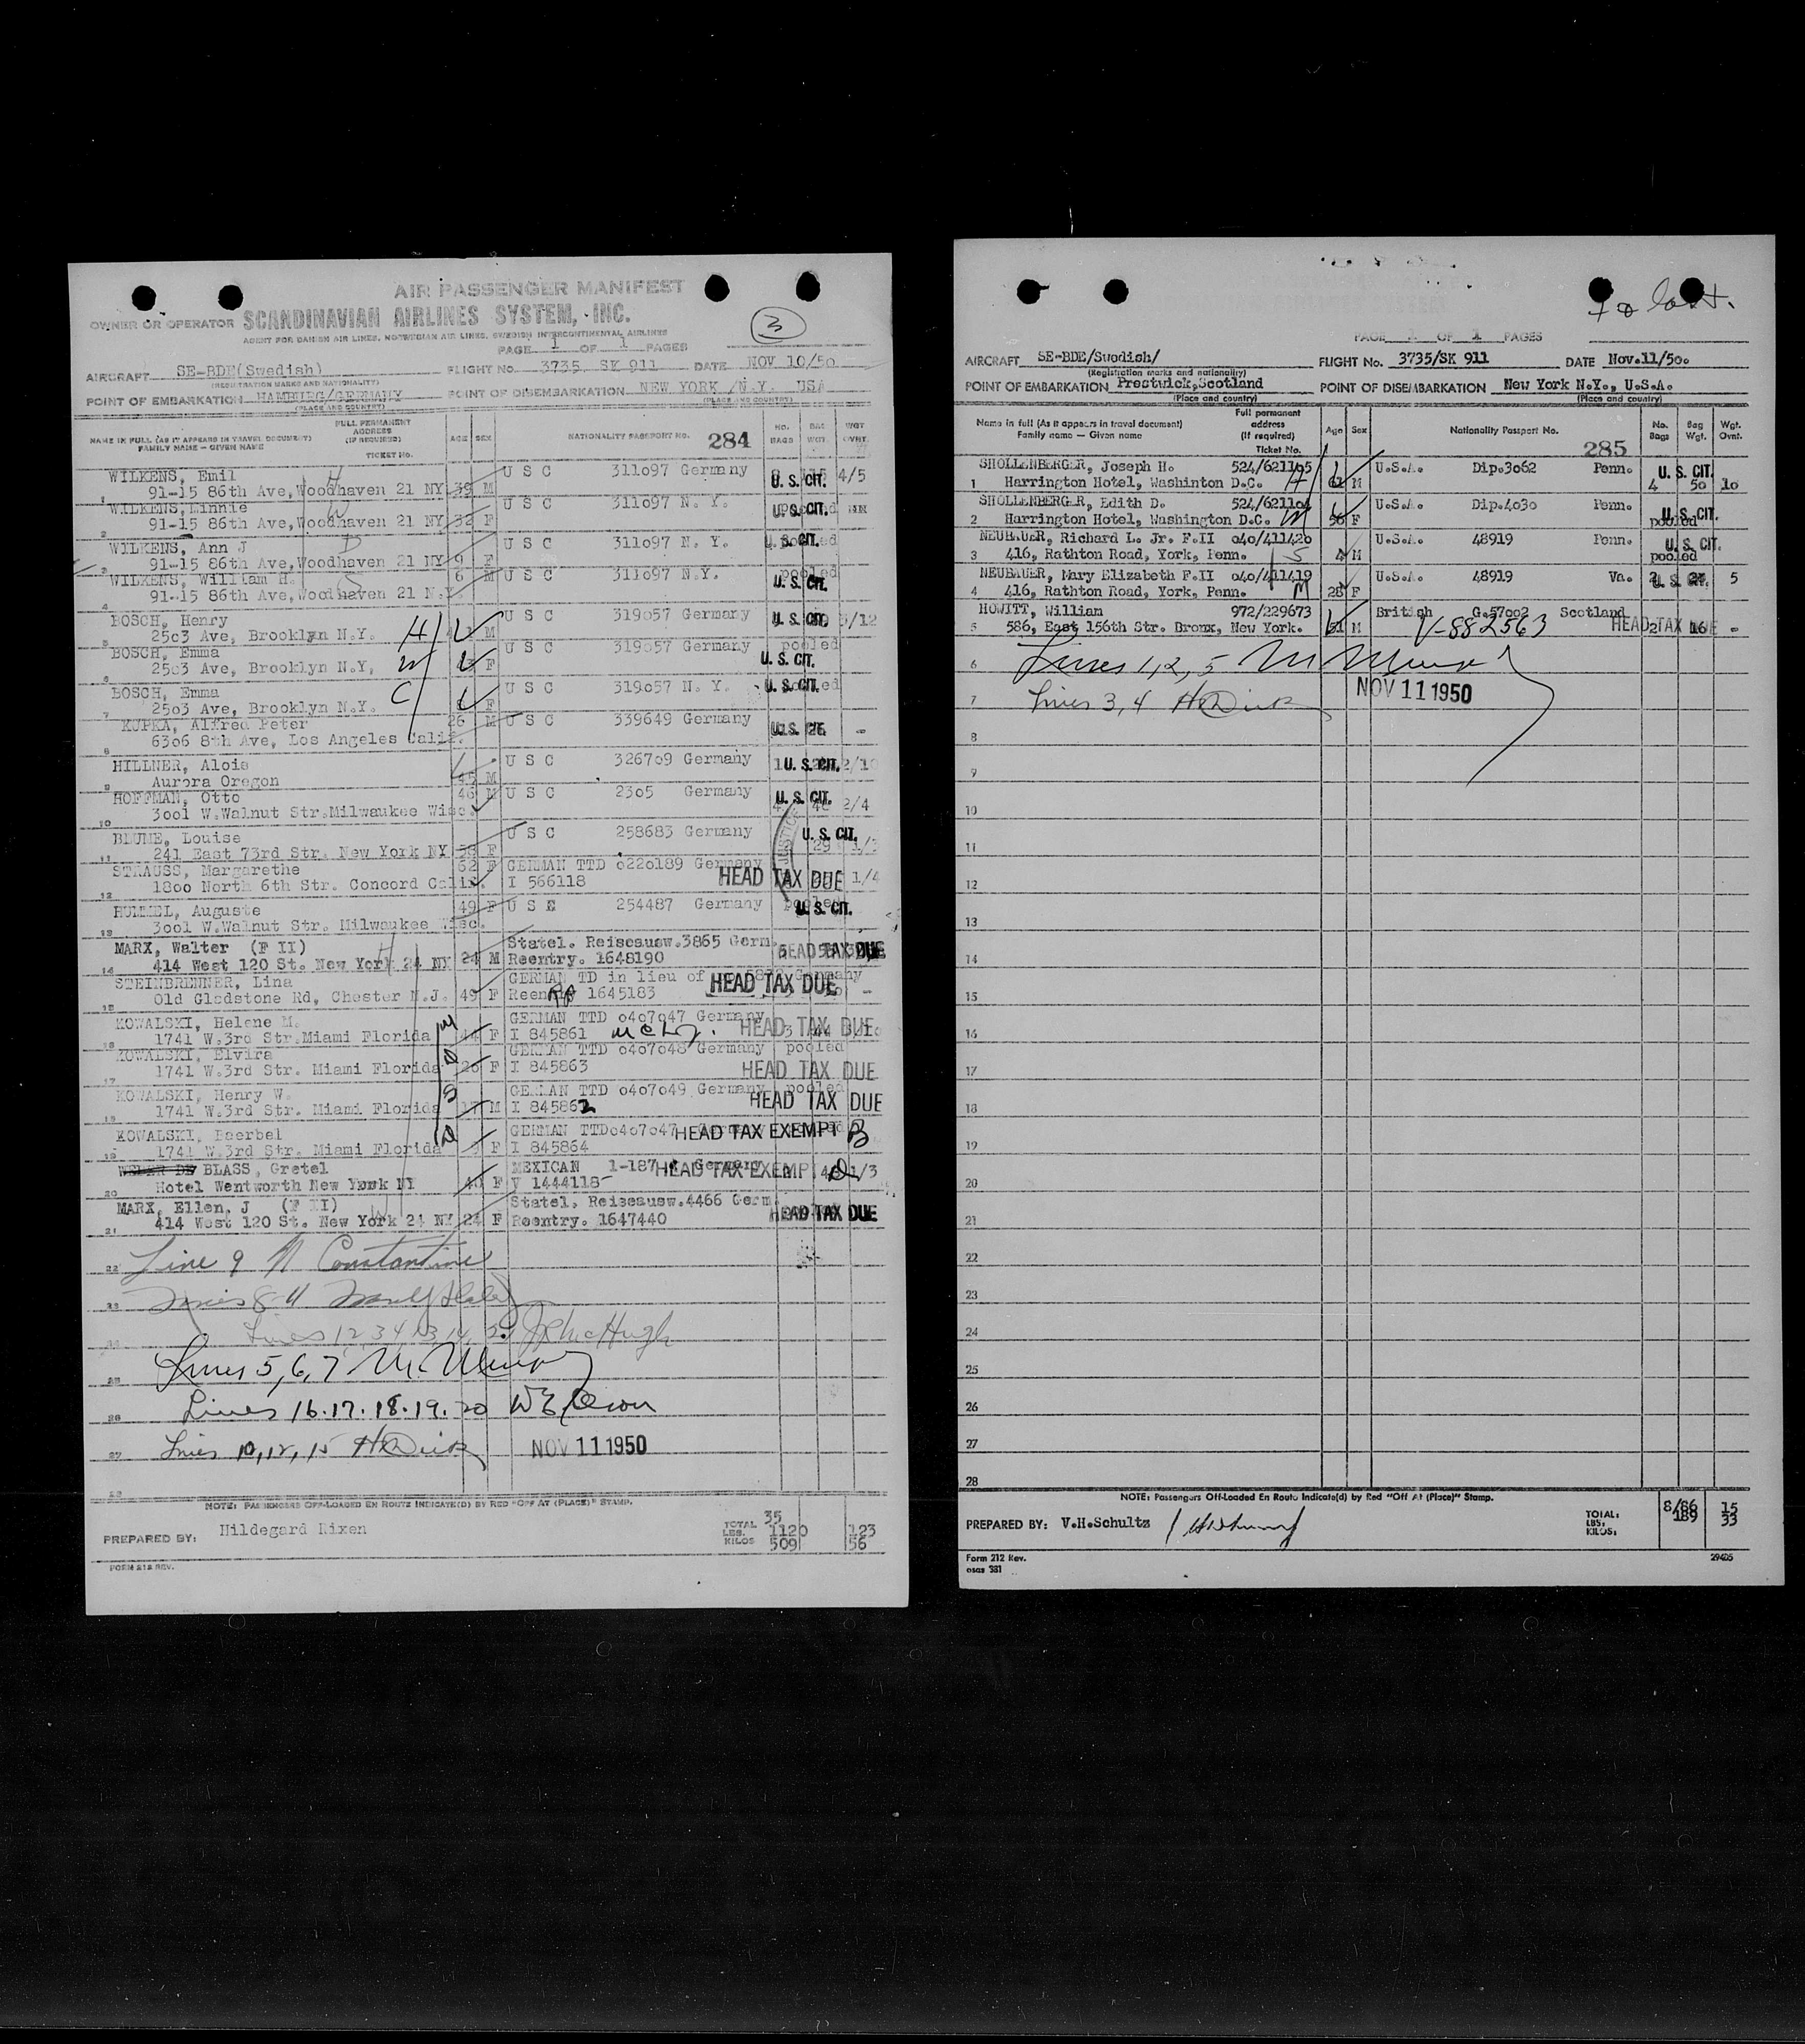 AIR PASSENGER MANIFEST
OWNER OR OPERATOR SCANDINAVIAN AIRLINES SYSTEM, INC.
3
AGENT FOR DANISH AIR LINES, NORWEGIAN AIR LINES, SWEDISH INTERCONTINENTAL AIRLINES
PAGE 1 OF 1 PAGES
AIRCRAFT SE-BDE(Swedish) FLIGHT NO. 3735 SK 911 DATE NOV 10/50
(REGISTRATION MARKS AND NATIONALITY)
POINT OF EMBARKATION HAMBURG/GERMANY POINT OF DISEMBARKATION NEW YORK /N.Y. USA
(PLACE AND COUNTRY) (PLACE AND COUNTRY)
NAME IN FULL (AS IT APPEARS IN TRAVEL DOCUMENT) FAMILY NAME — GIVEN NAME FULL PERMANENT ADDRESS (IF REQUIRED) TICKET NO. AGE SEX NATIONALITY PASSPORT NO. 284 NO. BAGS BAG WGT. WGT OVNT.
WILKENS, Emil H U S C 311097 Germany U. S. CIT. 4/5
1 91-15 86th Ave, Woodhaven 21 NY 39 M
WILKENS, Minnie W U S C 311097 N. Y. U. S. CIT.
2 91-15 86th Ave, Woodhaven 21 NY 32 F
WILKENS, Ann J D U S C 311097 N. Y. U. S. CIT. pooled
3 91-15 86th Ave, Woodhaven 21 NY 9 F
WILKENS, William H. S 6 M U S C 311097 N.Y. pooled U. S. CIT.
4 91-15 86th Ave, Woodhaven 21 N.Y.
BOSCH, Henry U S C 319057 Germany U. S. CIT. 3/12
5 2503 Ave, Brooklyn N.Y. H M
BOSCH, Emma U S C 319057 Germany pooled
6 2503 Ave, Brooklyn N.Y, W F U. S. CIT.
BOSCH, Emma C U S C 319057 N. Y. U. S. CIT. pooled
7 2503 Ave, Brooklyn N.Y. F
KUPKA, Alfred Peter 26 M U S C 339649 Germany U. S. CIT. -
8 6306 8th Ave, Los Angeles Calif.
HILLNER, Alois U S C 326709 Germany 1 U. S. CIT. 2/10
9 Aurora Oregon 45 M
HOFFMAN, Otto 46 M U S C 2305 Germany U. S. CIT. 2/4
10 3001 W.Walnut Str.Milwaukee Wisc.
BLUME, Louise U S C 258683 Germany U. S. CIT.
11 241 East 73rd Str. New York NY 58 F 29 1/3
STRAUSS, Margarethe 62 F GERMAN TTD 0220189 Germany
12 1800 North 6th Str. Concord Calif. I 566118 HEAD TAX DUE 1/4
HUMMEL, Auguste 49 F U S E 254487 Germany pooled U. S. CIT.
13 3001 W.Walnut Str. Milwaukee Wisc.
MARX, Walter (F II) H Statel. Reiseausw.3865 Germ. HEAD TAX DUE
14 414 West 120 St. New York 24 NY 24 M Reentry. 1648190
STEINBRENNER, Lina GERMAN TD in lieu of Germany
15 Old Gladstone Rd, Chester N.J. 49 F Reentry 1645183 HEAD TAX DUE -
KOWALSKI, Helene M. GERMAN TTD 0407047 Germany
16 1741 W.3rd Str.Miami Florida M 44 F I 845861 HEAD TAX DUE
KOWALSKI, Elvira GERMAN TTD 0407048 Germany pooled
17 1741 W.3rd Str. Miami Florida D 20 F I 845863 HEAD TAX DUE
KOWALSKI, Henry W. GERMAN TTD 0407049 Germany pooled
18 1741 W.3rd Str. Miami Florida S 17 M I 845862 HEAD TAX DUE
KOWALSKI, Baerbel GERMAN TTD0407047 Germany HEAD TAX EXEMPT B
19 1741 W.3rd Str. Miami Florida D F I 845864
WEBER DE BLASS, Gretel MEXICAN 1-187 Germany HEAD TAX EXEMPT 1/3
20 Hotel Wentworth New York NY F V 1444118
MARX, Ellen, J (F II) W Statel. Reiseausw.4466 Germ.
21 414 West 120 St. New York 24 NY 24 F Reentry. 1647440 HEAD TAX DUE
22 Line 9 N Constantine
23 Lines 8-11
24 Lines 1, 2, 3 4 13, 14, 21 J McHugh
25 Lines 5, 6, 7 M. Murphy
26 Lines 16.17.18.19.20
27 Lines 10, 12, 15 H Dick NOV 11 1950
28
NOTE: PASSENGERS OFF-LOADED EN ROUTE INDICATE(D) BY RED "OFF AT (PLACE)" STAMP.
PREPARED BY: Hildegard Rixen TOTAL 35
LBS. 1120 123
KILOS 509 56
FORM 212 REV.
to last.
PAGE 1 OF 1 PAGES
AIRCRAFT SE-BDE/Swedish/ FLIGHT No. 3735/SK 911 DATE Nov.11/50.
(Registration marks and nationality)
POINT OF EMBARKATION Prestwick,Scotland POINT OF DISEMBARKATION New York N.Y., U.S.A.
(Place and country) (Place and country)
Name in full (As it appears in travel document) Family name — Given name Full permanent address (if required) Ticket No. Age Sex Nationality Passport No. 285 No. Bags Bag Wgt. Wgt. Ovnt.
SHOLLENBERGER, Joseph H. 524/621105 U.S.A. Dip.3062 Penn. U. S. CIT.
1 Harrington Hotel, Washinton D.C. H 61 M 4 50 10
SHOLLENBERGER, Edith D. 524/621104 U.S.A. Dip.4030 Penn. U. S. CIT.
2 Harrington Hotel, Washington D.C. W 56 F pooled
NEUBAUER, Richard L. Jr. F.II 040/411420 U.S.A. 48919 Penn. U. S. CIT.
3 416, Rathton Road, York, Penn. S 4 M pooled
NEUBAUER, Mary Elizabeth F.II 040/411419 U.S.A. 48919 Va. U. S. CIT. 5
4 416, Rathton Road, York, Penn. M 28 F
HOWITT, William 972/229673 British G.57002 Scotland
5 586, East 156th Str. Bronx, New York. 51 M V-882563 HEAD TAX DUE 2 16 -
6 Lines 1, 2, 5 M Murphy
7 Lines 3, 4 H Dick NOV 11 1950
8
9
10
11
12
13
14
15
16
17
18
19
20
21
22
23
24
25
26
27
28
NOTE: Passengers Off-Loaded En Route Indicate(d) by Red "Off At (Place)" Stamp.
PREPARED BY: V.H.Schultz TOTAL: 8/86 15
LBS: 189 33
KILOS:
Form 212 Rev.
osas 381
29405